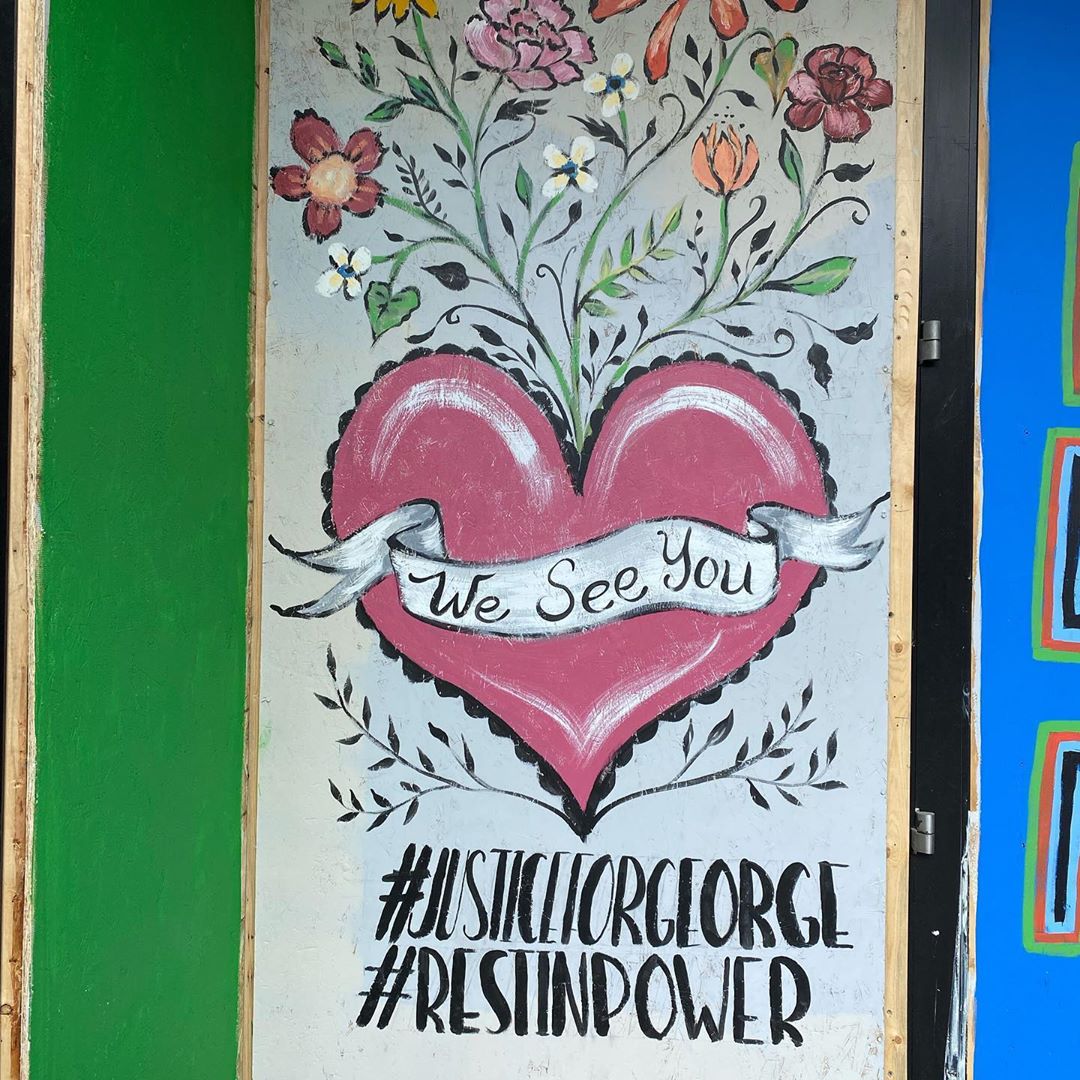 We See You
#JUSTICEFORGEORGE
#RESTINPOWER